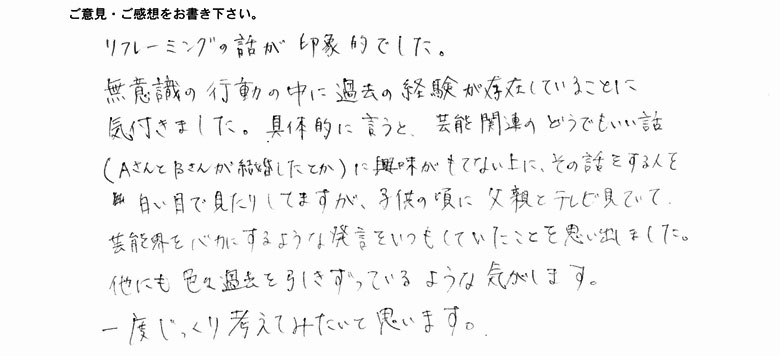 ご意見・ご感想をお書き下さい。
リフレーミングの話が印象的でした。
無意識の行動の中に過去の経験が存在していることに
気付きました。具体的に言うと、芸能関連のどうでもいい話
(AさんとBさんが結婚したとか)に興味がもてない上に、その話をする人を
白い目で見たりしてますが、子供の頃に父親とテレビ見ていて、
芸能界をバカにするような発言をいつもしていたことを思い出しました。
他にも色々過去を引きずっているような気がします。
一度じっくり考えてみたいと思います。